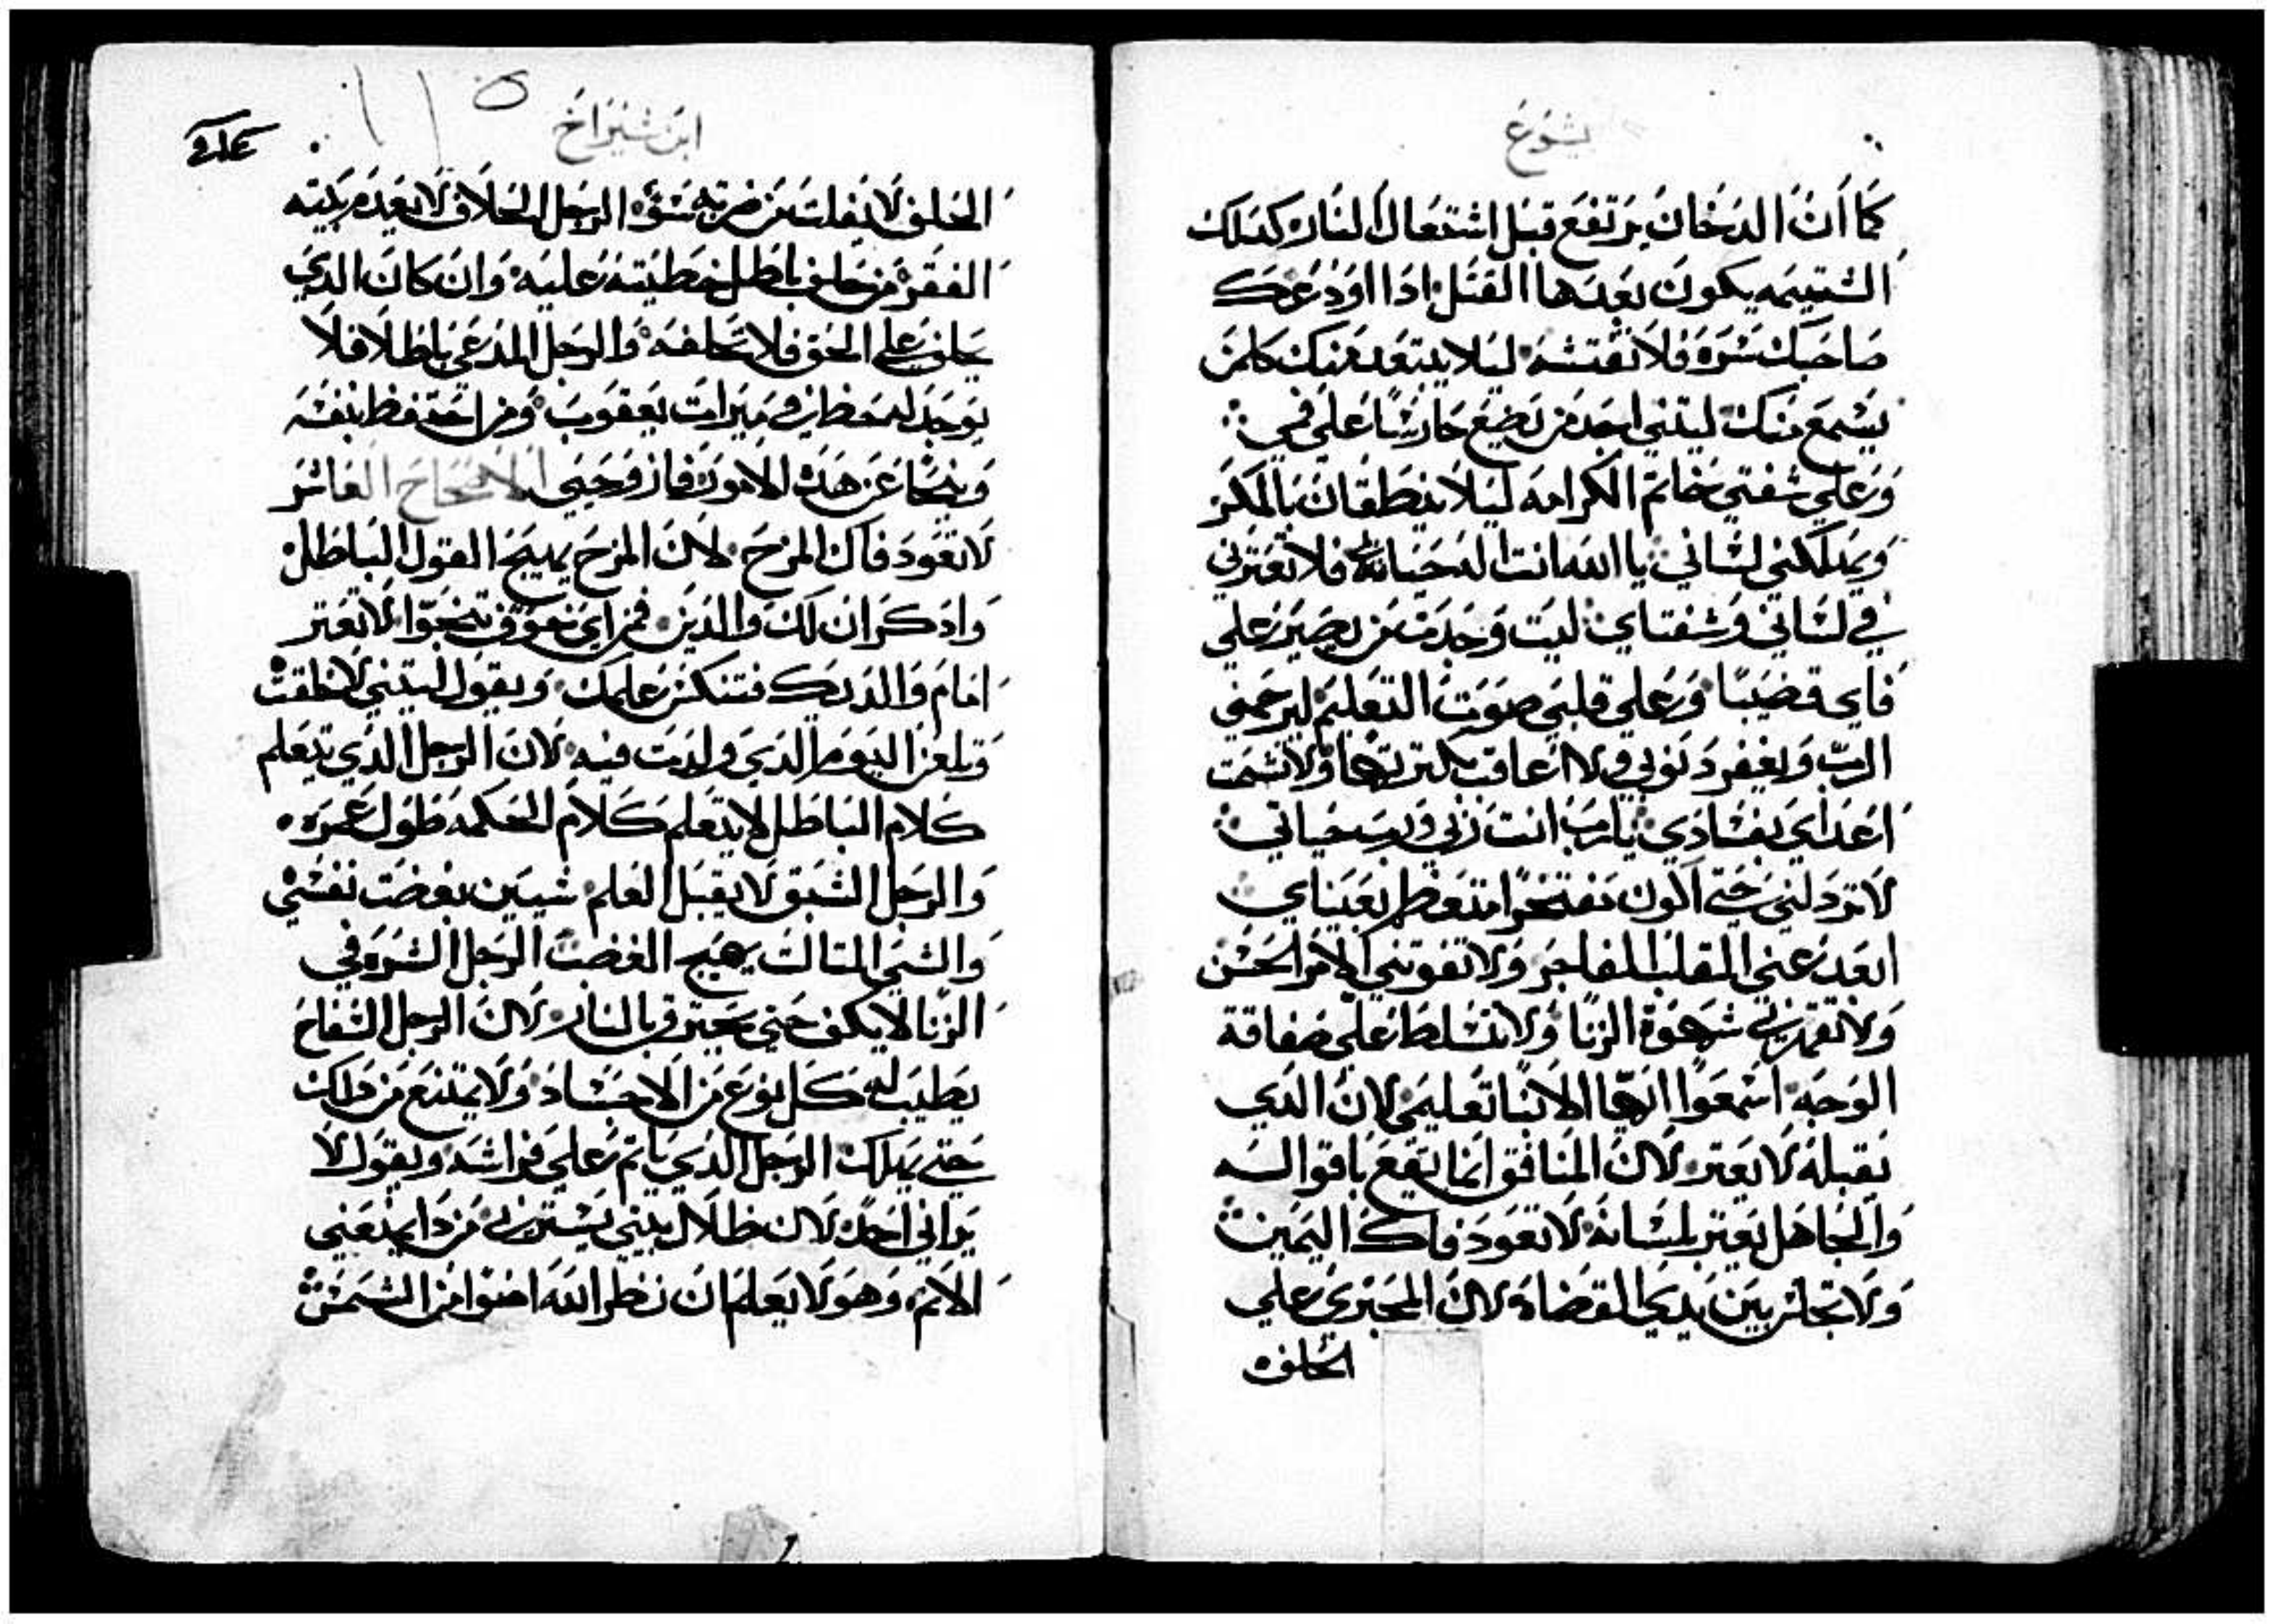 يشوع
كما ان الدخان يرتفع قبل اشتعال النار كدلك
الشتيمه يكون بعدها القتل ادا اودعك
صاحبك سره فلا تفتشه ليلا يبتعد عنك كلمن
يسمع منك ليتني اجد من يضع حارسًا علي في
وعلي شفتي خاتم الكرامه ليلا ينطقان بالمكر
ويملكني لساني يا الله انت اله حياتي فلا تعترني
في لساني وشفتاي ليت وجدت من يصير علي
فاي قضيبًا وعلي قلبي صوت التعليم ليرحمني
الرب ويغفر دنوبي ولا اعاقب بكترتها ولا تشمت
اعداي بفسادي يارب انت ربي ورب حياتي
لا تردلني حتي اكون مفتخرًا متعظم بعيناي
ابعد عني القلب الفاجر ولا تفوتني الامر الحسن
ولا تقهرني شهوة الزنا ولا تسلط علي صفاقة
الوجه اسمعوا ايها الابنا تعليمي لان الدي
يقبله لا يعتر لان المنافق انما يقع باقواله
والجاهل يعتر بلسانه لا تعود فاك اليمين
ولا تجلس بين يدي القضاه لان المجتري علي
الحلف
ابن شيراخ
الحلف لا يفلت من ضربه سوه الرجل الحلاف لا يعدم بيته
الفقر من حلف باطل خطيته عليه وان كان الدي
يحلف علي الحق فلا تحلفه والرجل المدعي باطلا فلا
يوجد له حظا في ميرات يعقوب ومن احتفظ بنفسه
وينجا عن هده الامور فاز وحيي الاصحاح العاشر
لا تعود فاك المزح لان المزح يهيج القول الباطل
وادكر ان لك والدين فمن اي تعوق تنجوا لا تعتر
امام والديك فتنكر علمك ويقول ليتني لا خلقت
وتلعن اليوم الدي ولدت فيه لان الرجل الدي تيعلم
كلام الباطل لا يتعلم كلام الحكمه طول عمره
والرجل الشبق لا يقبل العلم شيين بغضت نفسي
والشي التالت يهيج الغضب الرجل الشره في
الزنا لا يكف حتي يحترق بالنار لان الرجل السفاح
يطيب له كل نوع من الاجساد ولا يمتنع من داك
حتي يهلك الرجل الدي ياتم علي فراشه ويقول لا
يراني احد لان ظلال بيتي يسترني من دا يمنعني
الاتم وهو لا يعلم ان نظر الله اضوا من الشمس